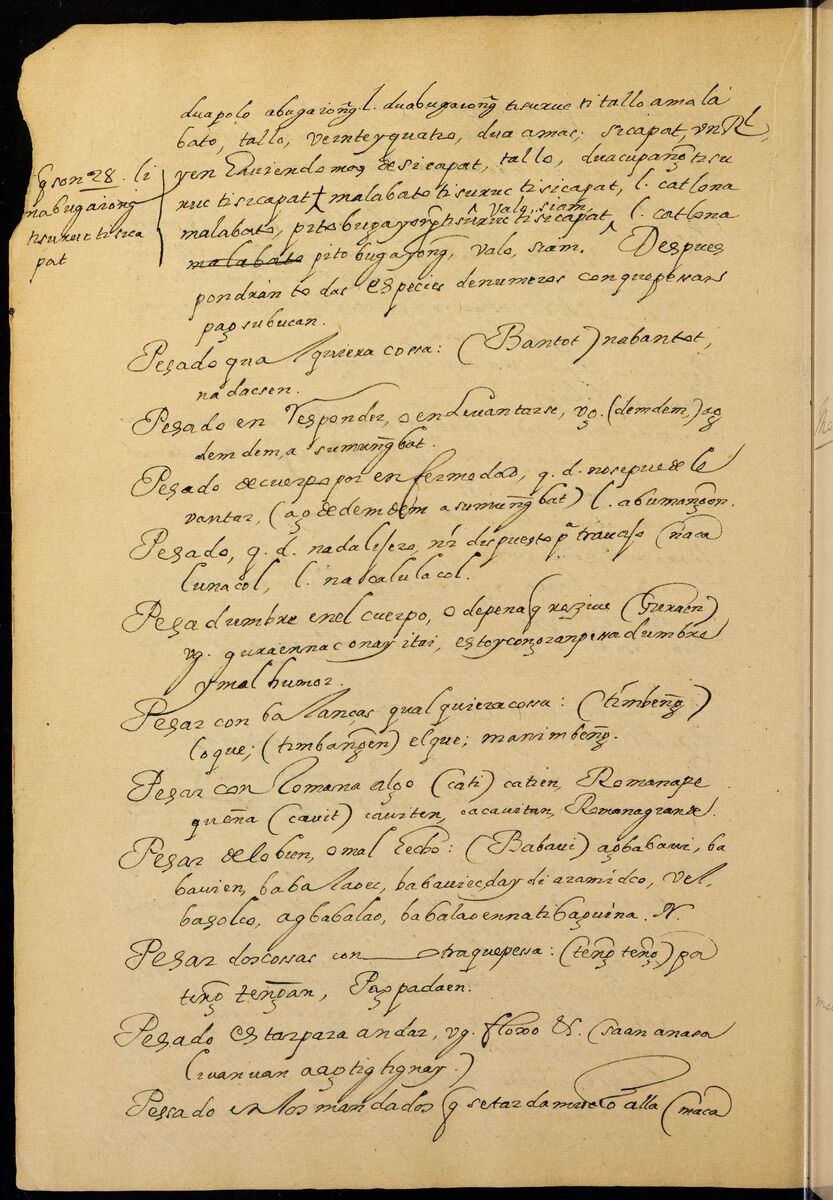 duapolo abugaiong̃. l. duabugaiong̃ tisuruc ti tallo amala
bato, tallo, veinteyquatro, dua amas; sicapat, vn Rl,
yen haviendo mog̃ de sicapat, tallo, duacupang̃ tisu
q̃ son 28. li
nabugaiong̃
tisuruc tisica
pat
ruc tisicapat malabato tisuruc tisicapat, l. catlona
valo, siam,
malabato, pitobugayong̃ tisuruc tisicapat, l. catlona
malabato pitobugayong̃, valo, siam. Despues
pondran todas especies de numeros con que pesan
pag̃subucan.
Pesado qualquiera cossa: (Bantot) nabantot,
nadacsen.
Pesado en responder, o en levantarse, vg. (demdem,) ag̃
demdem, a sumung̃bat.
Pesado de cuerpo por enfermedad, q. d. no se puede le
vantar, (ag̃dedemdem a sumung̃bat) l. abumang̃on.
Pesado, q. d. nada ligero, ni dispuesto pa travajo (naca
lunacol, l. nacalulacol.
Pesadumbre en el cuerpo, o de pena q̃ recive (Guraen)
vg. guraennac onay itai, estoy con gran pesadumbre
y mal humor.
Pesar con balanças qualquiera cossa: (timbeng̃)
lo que; (timbang̃en) el que; manimbeng̃.
Pesar con Romana algo (cati) catien, Romana pe
queña (cavit) caviten, cacavitan, Romana grande.
Pesar de lo bien, o mal hecho: (Babavi) ag̃babavi, ba
bavien, babalaoec, babaviec, day di aramidco, vel,
basolco, agbabalao, babalaoennati bag̃uina. N.
Pesar dos cossas con otra que pessa: (teng̃ teng̃,) pa
teng̃ teng̃an, Pag̃padaen.
Pesado estar para andar, vg. floxo &. (saan anasa
luanuan aag̃tig̃tig̃nay.)
Pessado en los mandados q̃ se tarda mucho alla (maca